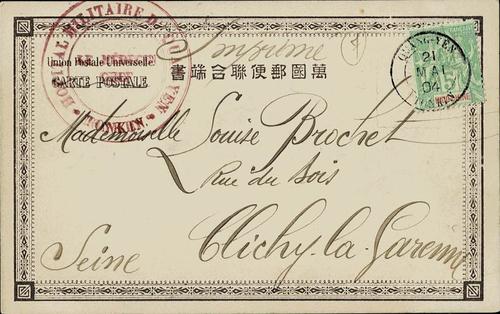 HOPITAL MILITAIRE DE QUANG-YEN
TONKIN
Imprimé
Union Postale Universelle
CARTE POSTALE
書端合聯便郵國萬
QUANG-YEN
21
MAI
04
TONKIN
5
Mademoiselle Louise Brochet
Rue du Bois
Clichy-la-Garenne
Seine